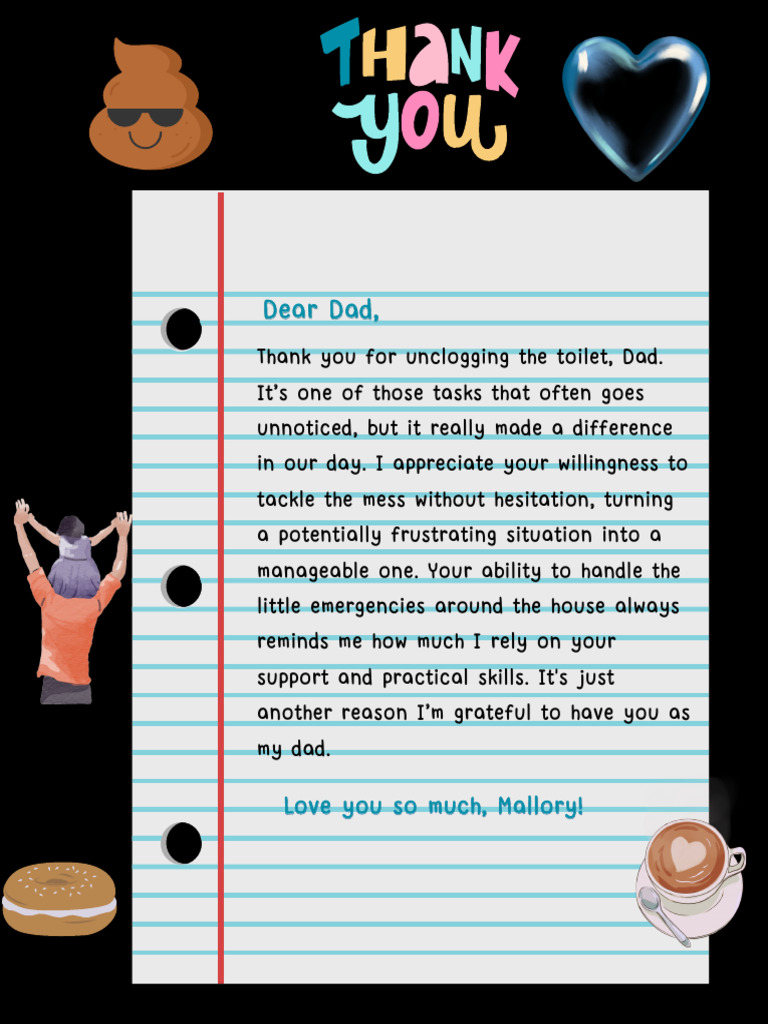 THANK
YOU
Dear Dad,
Thank you for unclogging the toilet, Dad.
It’s one of those tasks that often goes
unnoticed, but it really made a difference
in our day. I appreciate your willingness to
tackle the mess without hesitation, turning
a potentially frustrating situation into a
manageable one. Your ability to handle the
little emergencies around the house always
reminds me how much I rely on your
support and practical skills. It's just
another reason I’m grateful to have you as
my dad.
Love you so much, Mallory!